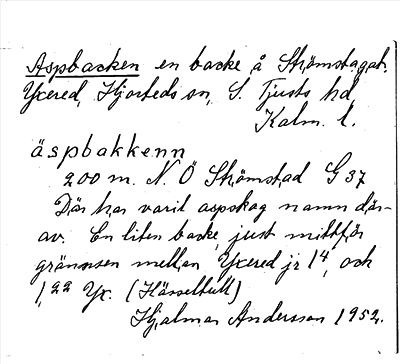 Aspbacken en backe å Strömstagat.
Yxered, Hjorteds sn, S. Tjusts hd
Kalm. l.
äspbakkenn
200 m. N. Ö Strömstad G 37
Där har varit aspskog namn där-
av. En liten backe just mittför
gränsen mellan Yxered jr 1⁴, och
1,²² Yx. (Hässeltult)
Hjalmar Andersson 1952.